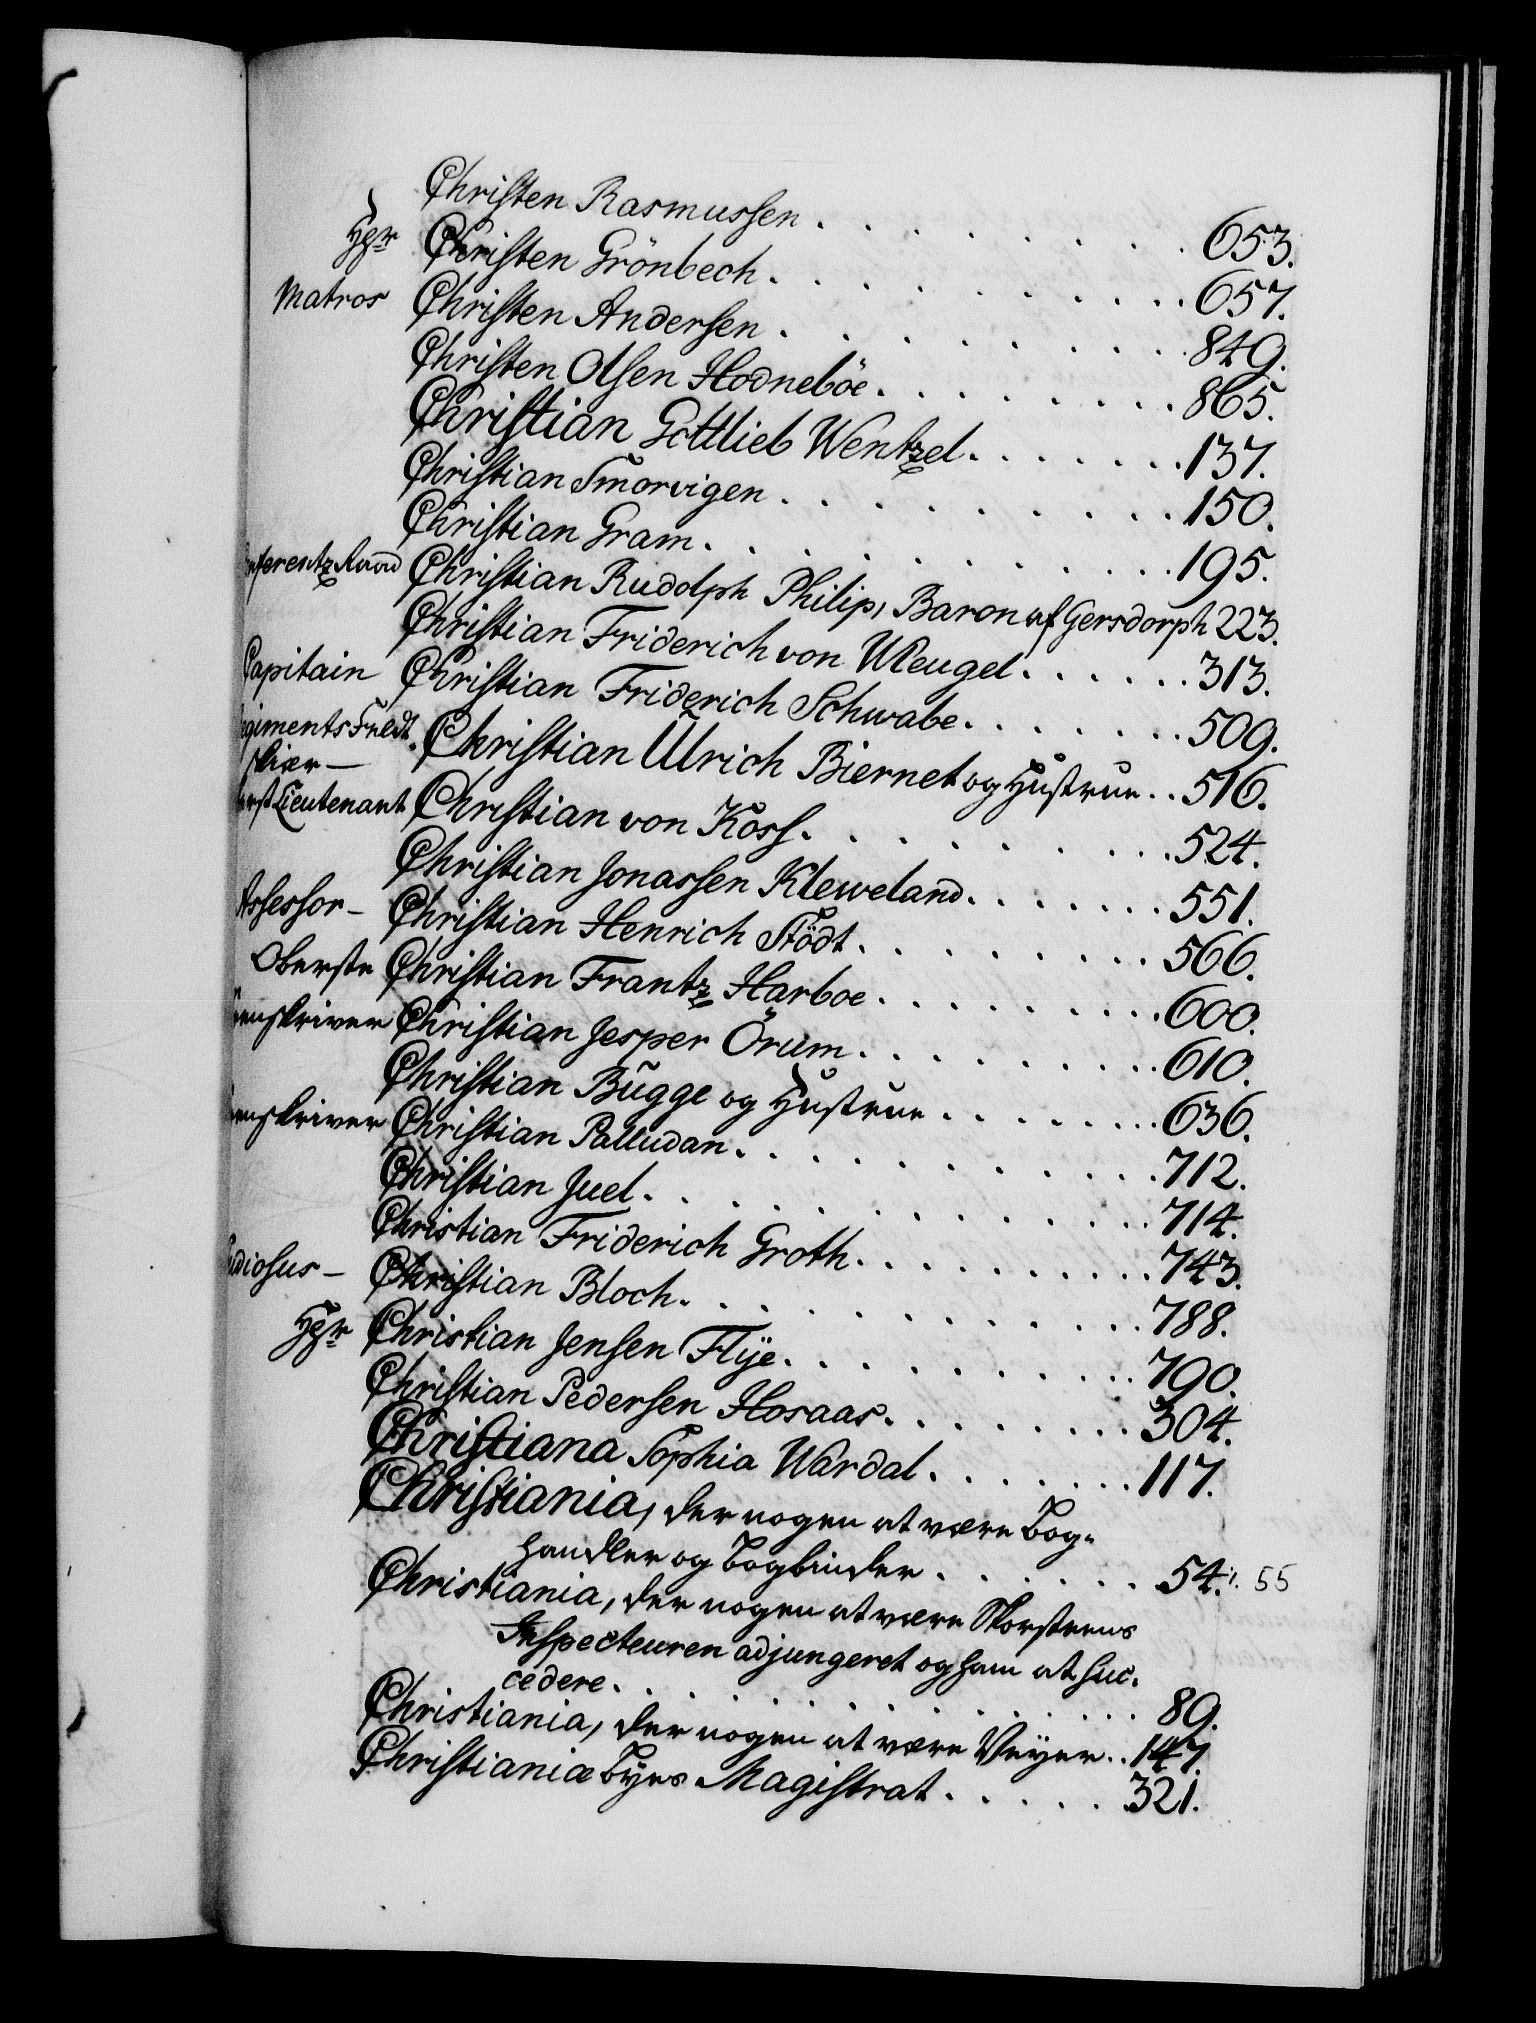 Christen Rasmussen . . . . . . . . . 653.
Hr Christen Grönbech . . . . . . . . . 657.
Matros Christen Andersen . . . . . . . . . 849.
Christen Olsen Hodneböe . . . . . . . . 865.
Christian Gottlieb Wentzel . . . . . . . 137.
Christian Smorvigen . . . . . . . . . 150.
Christian Gram . . . . . . . . . . 195.
ferentz Raad Christian Rudolph Philip, Baron af Gersdorph 223.
Christian Friderich von Wleugel . . . . . . 313.
Capitain Christian Friderich Schwabe . . . . . . . 509.
giments Feldt-
skiær — Christian Ulrich Biernet og Hustrue . . 516.
erst Lieutenant Christian von Koss . . . . . . . . . 524.
Christian Jonassen Kleweland . . . . . . . 551.
Assessor — Christian Henrich Stödt . . . . . . . . 566.
Oberste Christian Frantz Harboe . . . . . . . . 600.
enskriver Christian Jesper Örum . . . . . . . . 610.
Christian Bugge og Hustrue . . . . . . . 636.
enskriver Christian Palludan . . . . . . . . . . 712.
Christian Juel . . . . . . . . . . . . 714.
Christian Friderich Groth . . . . . . . . 743.
udiosus — Christian Bloch . . . . . . . . . . . 788.
Hr Christian Jensen Flÿe . . . . . . . . . 790.
Christian Pedersen Hosaas . . . . . . . . 304.
Christiana Sophia Wardal . . . . . . . 117.
Christiania, der nogen at være Bog-
handler og Bogbinder . . . . . . 54. 55
Christiania, der nogen at være Skorsteens
Inspecteuren adjungeret og ham at suc-
cedere . . . . . . . . . . . . 89.
Christiania, der nogen at være Veyer . . 147.
Christiania Byes Magistrat . . . . . 321.